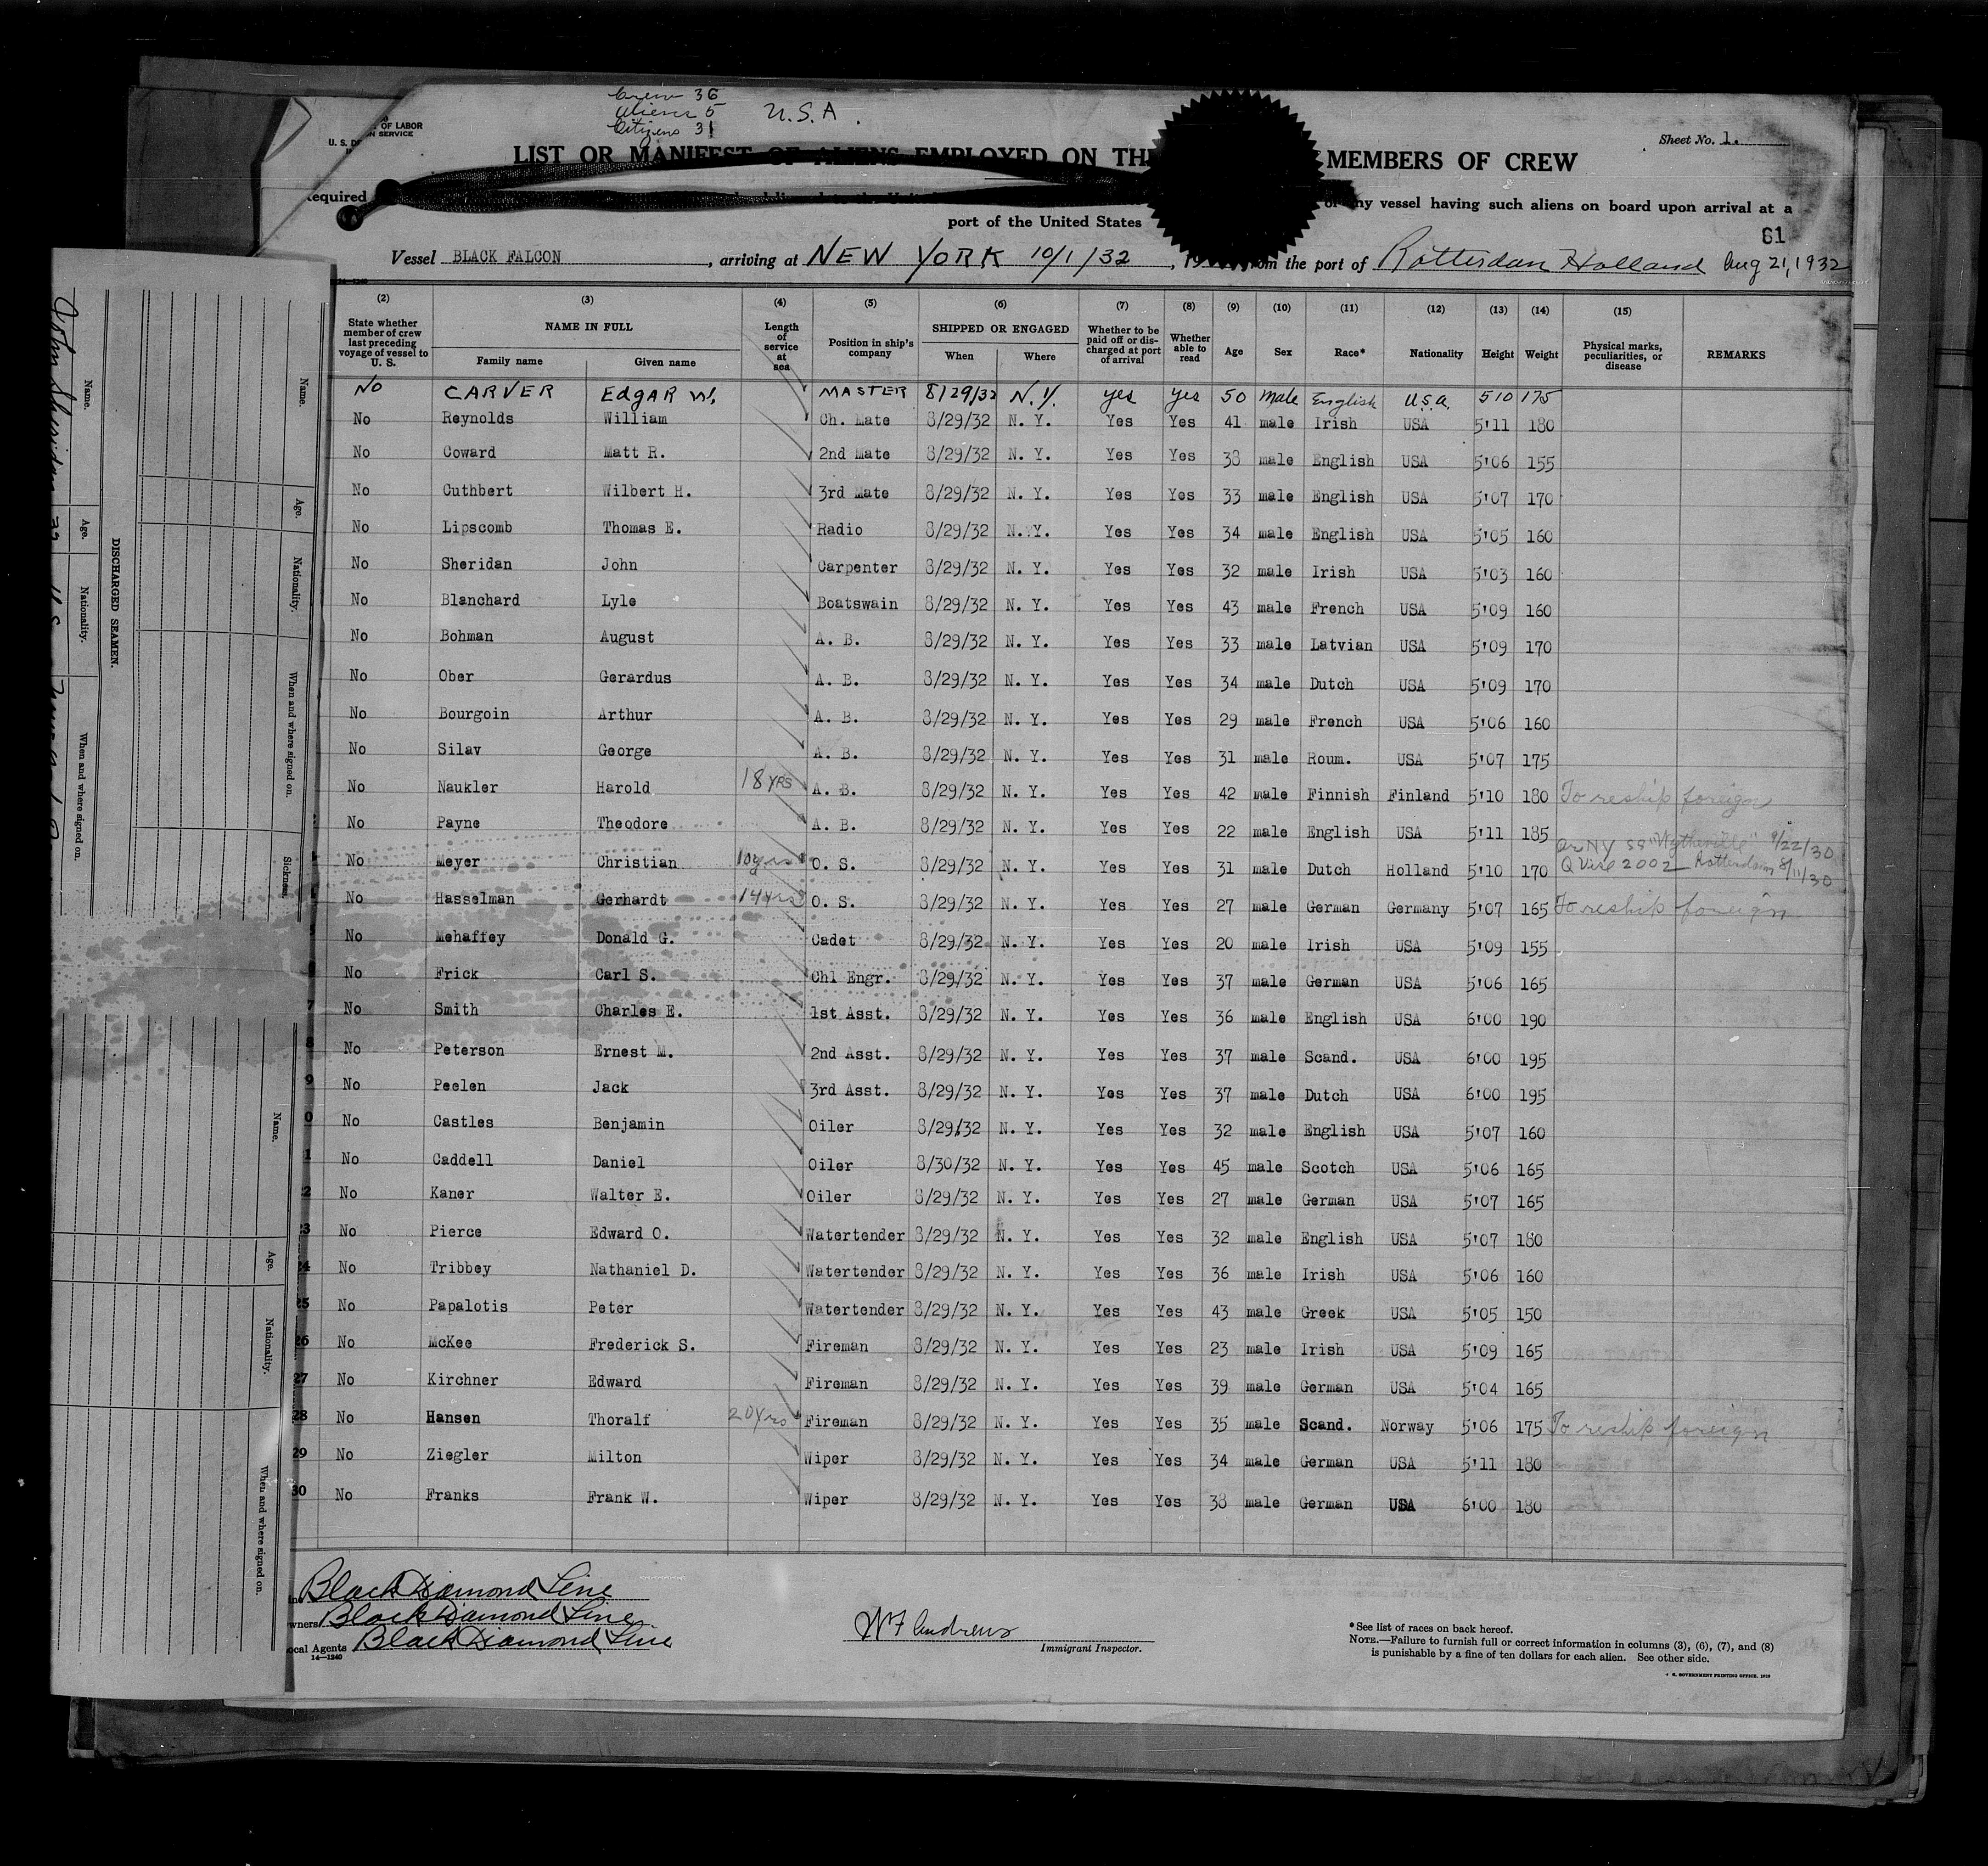 Crew 36
Aliens 5
Citizens 31
U.S.A.
OF LABOR
SERVICE
U. S.
Sheet No. 1.
LIST OR MANIFEST OF ALIENS EMPLOYED ON THE MEMBERS OF CREW
Required of any vessel having such aliens on board upon arrival at a
port of the United States
61
Vessel BLACK FALCON, arriving at NEW YORK 10/1/32, 19 from the port of Rotterdam Holland Aug 21, 1932
(2) (3) (4) (5) (6) (7) (8) (9) (10) (11) (12) (13) (14) (15)
State whether member of crew last preceding voyage of vessel to U. S. NAME IN FULL Family name Given name Length of service at sea Position in ship's company SHIPPED OR ENGAGED When Where Whether to be paid off or discharged at port of arrival Whether able to read Age Sex Race* Nationality Height Weight Physical marks, peculiarities, or disease REMARKS
No CARVER EdgAR W. MASTER 8/29/32 N.Y. yes yes 50 Male English U.S.A. 510 175
No Reynolds William Ch. Mate 8/29/32 N. Y. Yes Yes 41 male Irish USA 5'11 180
No Coward Matt R. 2nd Mate 8/29/32 N. Y. Yes Yes 38 male English USA 5'06 155
No Cuthbert Wilbert H. 3rd Mate 8/29/32 N. Y. Yes Yes 33 male English USA 5'07 170
No Lipscomb Thomas E. Radio 8/29/32 N. Y. Yes Yes 34 male English USA 5'05 160
No Sheridan John Carpenter 8/29/32 N. Y. Yes Yes 32 male Irish USA 5'03 160
No Blanchard Lyle Boatswain 8/29/32 N. Y. Yes Yes 43 male French USA 5'09 160
No Bohman August A. B. 8/29/32 N. Y. Yes Yes 33 male Latvian USA 5'09 170
No Ober Gerardus A. B. 8/29/32 N. Y. Yes Yes 34 male Dutch USA 5'09 170
No Bourgoin Arthur A. B. 8/29/32 N. Y. Yes Yes 29 male French USA 5'06 160
No Silav George A. B. 8/29/32 N. Y. Yes Yes 31 male Roum. USA 5'07 175
No Naukler Harold 18 YRS A. B. 8/29/32 N. Y. Yes Yes 42 male Finnish Finland 5'10 180 To reship foreign
No Payne Theodore A. B. 8/29/32 N. Y. Yes Yes 22 male English USA 5'11 185
ar NY SS "Wytheville" 9/22/30
No Meyer Christian 10 yrs O. S. 8/29/32 N. Y. Yes Yes 31 male Dutch Holland 5'10 170 Q Vise 2002 Rotterdam 8/11/30
No Hasselman Gerhardt 14 yrs O. S. 8/29/32 N. Y. Yes Yes 27 male German Germany 5'07 165 To reship foreign
No Mehaffey Donald G. Cadet 8/29/32 N. Y. Yes Yes 20 male Irish USA 5'09 155
No Frick Carl S. Chl Engr. 8/29/32 N. Y. Yes Yes 37 male German USA 5'06 165
7 No Smith Charles E. 1st Asst. 8/29/32 N. Y. Yes Yes 36 male English USA 6'00 190
8 No Peterson Ernest M. 2nd Asst. 8/29/32 N. Y. Yes Yes 37 male Scand. USA 6'00 195
9 No Peelen Jack 3rd Asst. 8/29/32 N. Y. Yes Yes 37 male Dutch USA 6'00 195
0 No Castles Benjamin Oiler 8/29/32 N. Y. Yes Yes 32 male English USA 5'07 160
1 No Caddell Daniel Oiler 8/30/32 N. Y. Yes Yes 45 male Scotch USA 5'06 165
2 No Kaner Walter E. Oiler 8/29/32 N. Y. Yes Yes 27 male German USA 5'07 165
23 No Pierce Edward O. Watertender 8/29/32 N. Y. Yes Yes 32 male English USA 5'07 180
24 No Tribbey Nathaniel D. Watertender 8/29/32 N. Y. Yes Yes 36 male Irish USA 5'06 160
25 No Papalotis Peter Watertender 8/29/32 N. Y. Yes Yes 43 male Greek USA 5'05 150
26 No McKee Frederick S. Fireman 8/29/32 N. Y. Yes Yes 23 male Irish USA 5'09 165
27 No Kirchner Edward Fireman 8/29/32 N. Y. Yes Yes 39 male German USA 5'04 165
28 No Hansen Thoralf 20 Yrs Fireman 8/29/32 N. Y. Yes Yes 35 male Scand. Norway 5'06 175 To reship foreign
29 No Ziegler Milton Wiper 8/29/32 N. Y. Yes Yes 34 male German USA 5'11 180
30 No Franks Frank W. Wiper 8/29/32 N. Y. Yes Yes 38 male German USA 6'00 180
Black Diamond Line
wners Black Diamond Line
ocal Agents Black Diamond Line
14—1240
WF Andrews
Immigrant Inspector.
*See list of races on back hereof.
NOTE.—Failure to furnish full or correct information in columns (3), (6), (7), and (8)
is punishable by a fine of ten dollars for each alien. See other side.
GOVERNMENT PRINTING OFFICE
DISCHARGED SEAMEN.
Name. Age. Nationality. When and where signed on.
John Sheridan
Name. Age. Nationality. When and where signed on. Sickness.
Name. Age. Nationality. When and where signed on.